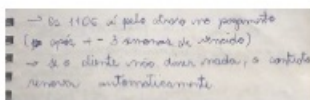 → Os 1106 é pelo atraso no pagamento
( após + - 3 semanas de vencido)
→ se o cliente não disser nada, o contrato
renova automaticamente